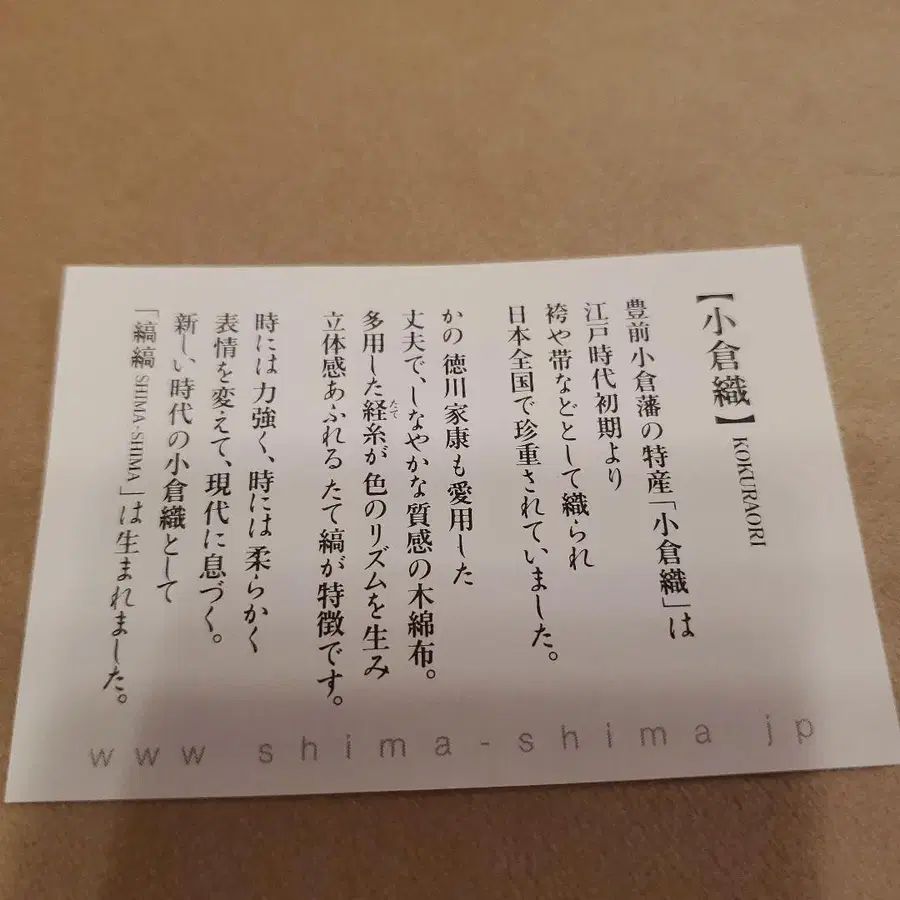 【小倉織】KOKURAORI
豊前小倉藩の特産「小倉織」は
江戸時代初期より
袴や帯などとして織られ
日本全国で珍重されていました。
かの徳川家康も愛用した
丈夫で、しなやかな質感の木綿布。
多用した経糸が色のリズムを生み
たて
立体感あふれるたて縞が特徴です。
時には力強く、時には柔らかく
表情を変えて、現代に息づく。
新しい時代の小倉織として
「縞縞 SHIMA-SHIMA」は生まれました。
www shima-shima jp